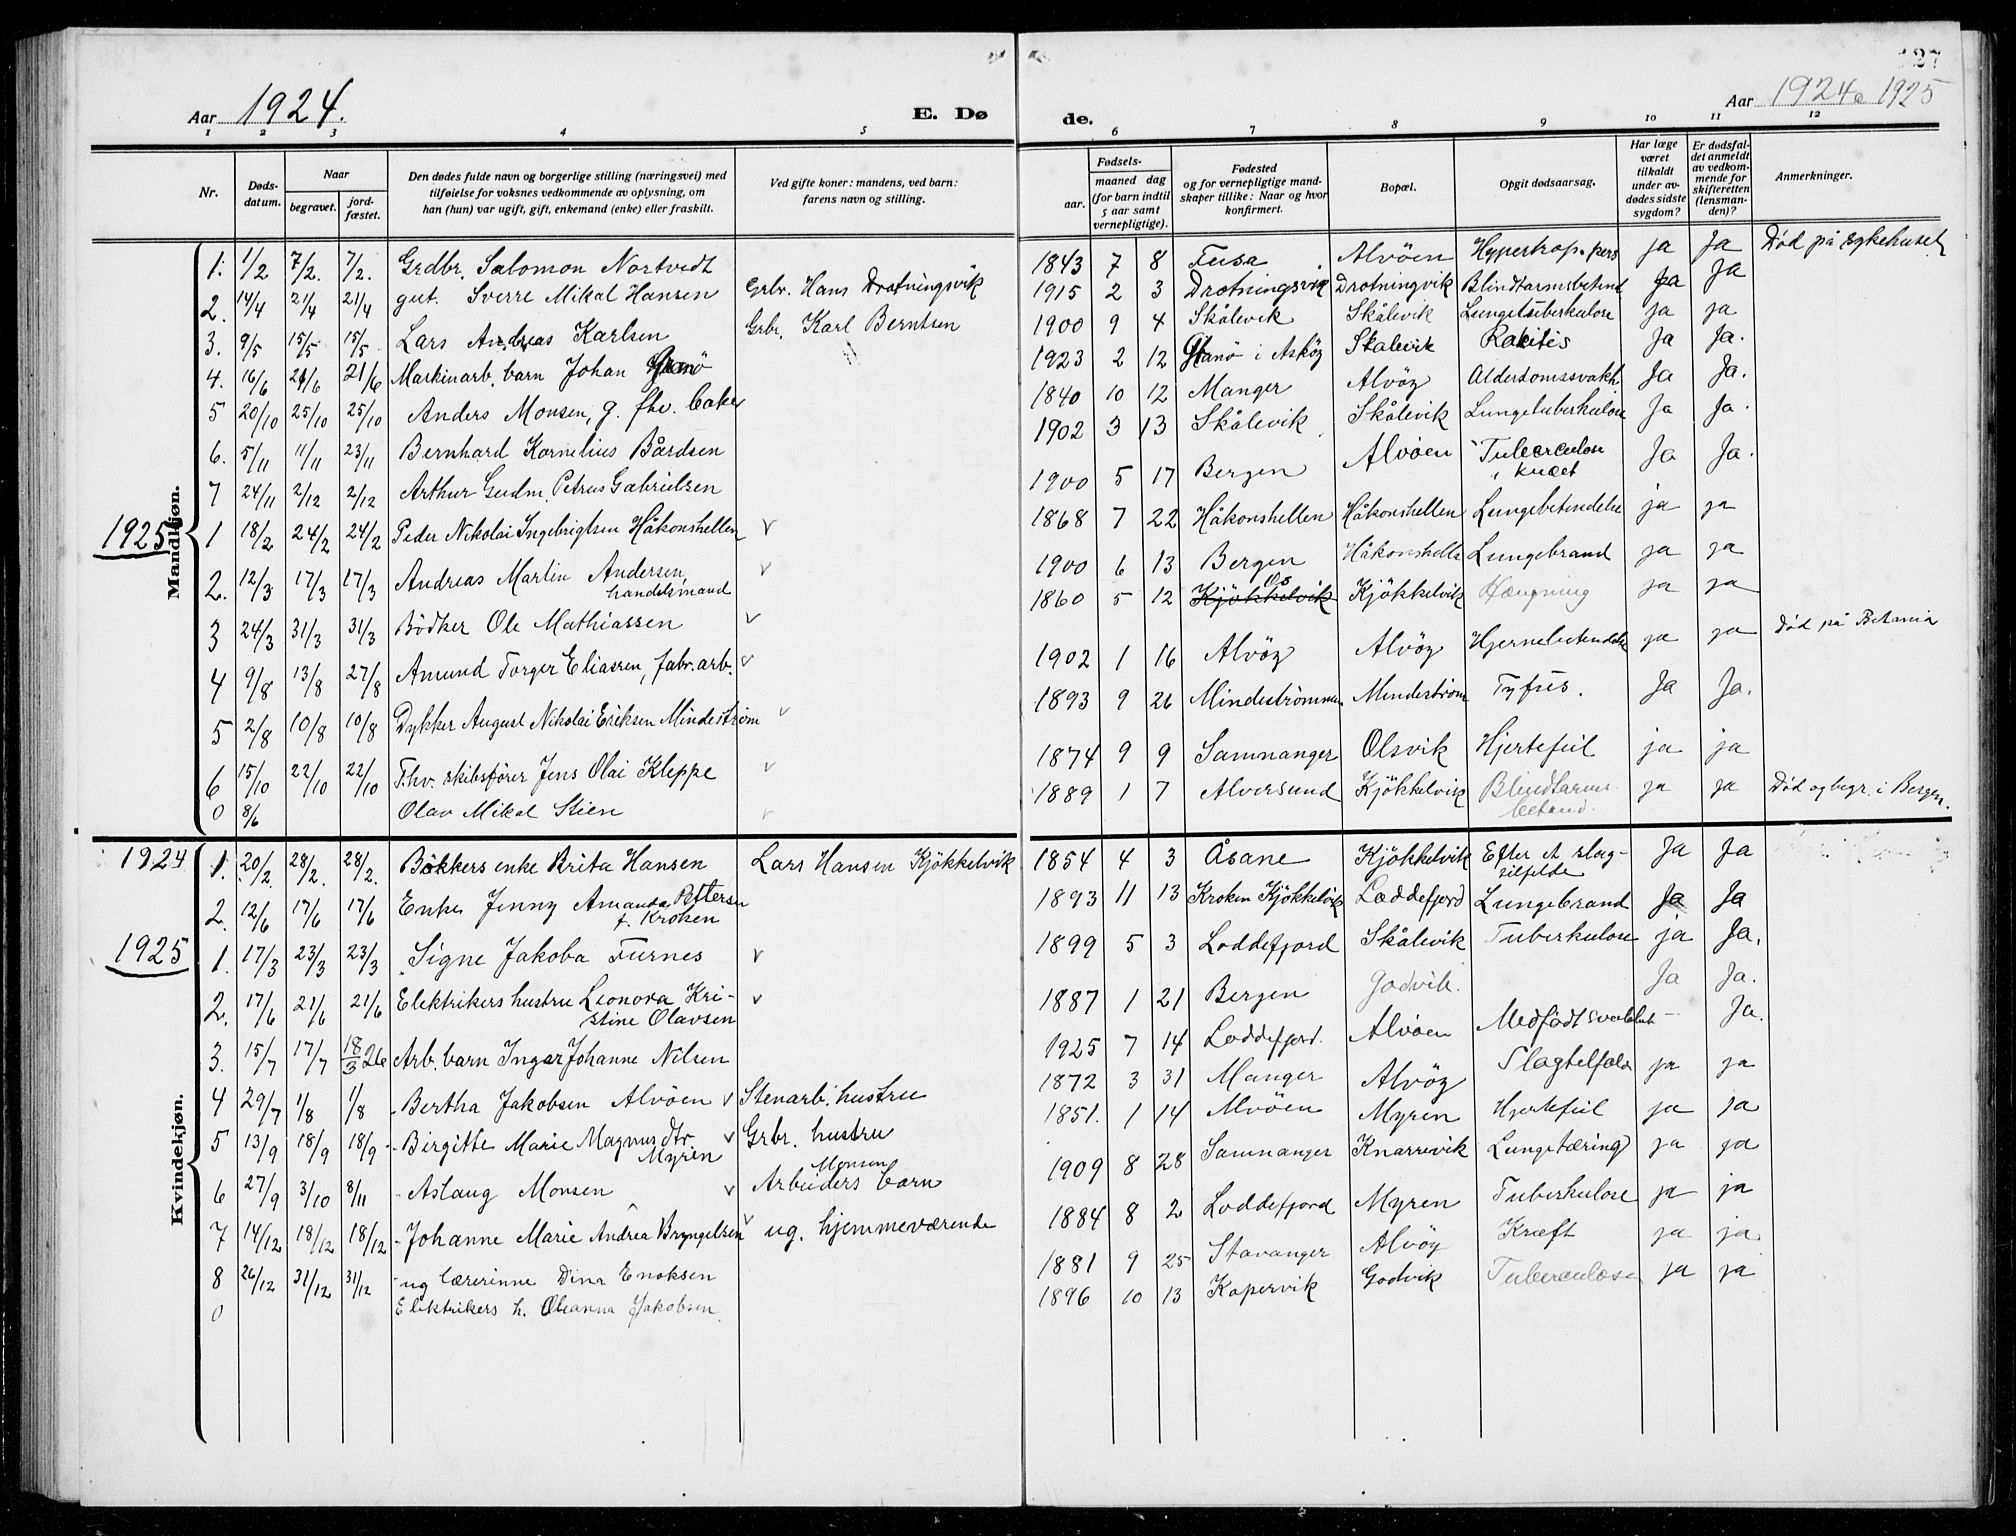 127
Aar 1924.
E. Dø
de.
Aar 1924 o 1925
1 2 3 4 5 6 7 8 9 10 11 12
Nr.
Døds-datum.
Naar
begravet.
jord-fæstet.
Den dødes fulde navn og borgerlige stilling (næringsvei) med
tilføielse for voksnes vedkommende av oplysning, om
han (hun) var ugift, gift, enkemand (enke) eller fraskilt.
Ved gifte koner: mandens, ved barn:
farens navn og stilling.
Fødsels-
aar.
maaned dag
(for barn indtil
5 aar samt
vernepligtige).
Fødested
og for vernepligtige mand-
skaper tillike: Naar og hvor
konfirmert.
Bopæl.
Opgit dødsaarsag.
Har læge
været
tilkaldt
under av-
dødes sidste
sygdom?
Er dødsfal-
det anmeldt
av vedkom-
mende for
skifteretten
(lensman-
den)?
Anmerkninger.
Mandkjøn.
1. 1/2 7/2. 7/2. Grdbr. Salomon Nortvedt 1843 7 8 Fusa Alvöen Hypertrop. pers Ja Ja Död på sykehuset
2. 14/4 21/4 21/4 gut. Sverre Mikal Hansen Grbr. Hans Drotningsvik 1915 2 3 Drotningsvik Drotningvik Blindtarmsbetend Ja Ja
3. 9/5 15/5 15/5 Lars Andreas Karlsen Grbr. Karl Berntsen 1900 9 4 Skålevik Skålevik Lungetuberkulose Ja ja
4. 16/6 21/6 21/6 Maskinarb. barn Johan 1923 2 12 i Asköy Skalevik Rakitis Ja Ja.
5 20/10 25/10 25/10 Anders Monsen, g. fhv. 1840 10 12 Manger Alvöy Alderdomssvakh Ja Ja.
6. 5/11 11/11 23/11 Bernhard Kornelius Bårdsen 1902 3 13 Skålevik Skålevik Lungetuberkulose Ja Ja.
7 24/11 2/12 2/12 Arthur Gudm. Petrus Gabrielsen 1900 5 17 Bergen Alvöen Tuberculose i knæet Ja Ja.
1925
1 18/2 24/2 24/2 Peder Nikolai Ingebrigtsen Håkonshellen v 1868 7 22 Håkonshellen Håkonshellen Lungebetendelse ja ja
2. 12/3 17/3 17/3 Andreas Martin Andersen, handelsmand v 1900 6 13 Bergen Håkonshelle Lungebrand ja ja
3 24/3 31/3 31/3 Bödker Ole Mathiassen v 1860 5 12 Kjökkelvik Os Kjökkelvik Hængning ja ja
4 9/8 13/8 27/8 Amund Torger Eliassen, fabr. arb. v 1902 1 16 Alvöy Alvöy Hjernebetendelse ja ja Död på Betania
5 2/8 10/8 10/8 Dykker August Nikolai Eriksen Mindeström v 1893 9 26 Mindeströmmen Mindeström Tyfus. Ja Ja.
6 15/10 22/10 22/10 F.hv. skibsförer Jens Olai Kleppe v 1874 9 9 Samnanger Olsvik Hjertefeil ja ja
0 8/6 Olav Mikal Stien v 1889 1 7 Alversund Kjökkelvik Blindtarms betend. ja ja Död og begr. i Bergen.
Kvindekjøn.
1924
1. 20/2. 28/2. 28/2. Bökkers enke Brita Hansen Lars Hansen Kjökkelvik 1854 4 3 Åsane Kjökkelvik Efter et slag-tilfelde Ja Ja
2. 12/6 17/6 17/6 Enke Jenny Amanda Pettersen f. Kroken 1893 11 13 Kroken Kjökkelvik Loddefjord Lungebrand Ja Ja
1925
1. 17/3 23/3 23/3 Signe Jakoba Furnes v 1899 5 3 Loddefjord Skålevik Tuberkulose ja Ja.
2. 17/6 21/6 21/6 Elektrikers hustru Leonora Kri-stine Olavsen v 1887 1 21 Bergen Godvik. Ja Ja.
3. 15/7 17/7 18/3 26 Arb. barn Inger Johanne Nilsen 1925 7 14 Loddefjord. Alvöen Medfödt svakhet - Ja.
4 29/7 1/8 1/8 Bertha Jakobsen Alvöen v Stenarb. hustru 1872 3 31 Manger Alvöy Slagtelfælde ja ja
5 13/9 18/9 18/9 - Birgitte Marie Magnusdtr. Myren v Grbr. hustru 1851. 1 14 Alvöen Myren Hjertefeil ja ja
6 27/9 3/10 8/11 - Aslaug Monsen v Arbeiders Monsen barn 1909 8 28 Samnanger Knarrevik Lungetæring ja ja
7 14/12 18/12 18/12 - Johanne Marie Andrea Bryngelsen v ug. hjemmeværende 1884 8 2 Loddefjord Myren Tuberkulose ja ja
8 26/12 31/12 31/12 - ug lærerinne Dina Enoksen 1881 9 25 Stavanger Alvöy Kræft ja ja
0 Elektrikers h. Oleanna Jakobsen 1896 10 13 Kopervik Godvik Tuberculose ja ja